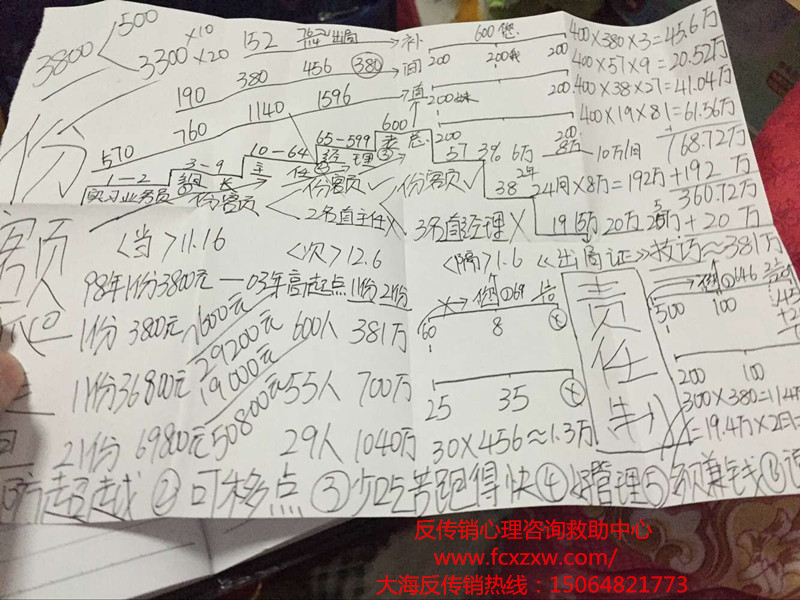 3800 500
3300 ×10 ×20
152 出局 补
190 380 456 380 间
570 760 1140 1596
600您
200 200我 200
200 200
200妹
200 200
400×380×3=45.6万
400×57×9=20.52万
400×38×27=41.04万
400×19×81=61.56万
168.72万
+192万
360.72万
+20万
1-2 3-9 10-64 65-599 600
实习业务员 组长 主任 经理 老总
份额 份额 份额
2名直主任 3名直经理
57 3% 6万 8万 10万/月
38 2年 24月×8万=192万
19 15万 20万 25万
份额
<当>11.16 <次>12.6 <隔>1.6 《出局证》 技巧≈381万
98年1份3800元—03年高起点11份21份
1份 3800元 7600元 600人 381万
29200元
11份36800元 19000元 55人 700万
21份 69800元 50800元 29人 1040万
60 8
25 35
30×456≈1.3万
责任制
500 100
200 100
300×380=11.4万
=19.4万×2
超越 ②可移点 ③少吃苦跑得快 ④好管理 ⑤多赚钱 ⑥
反传销心理咨询救助中心
www.fcxzxw.com/
大海反传销热线：15064821773